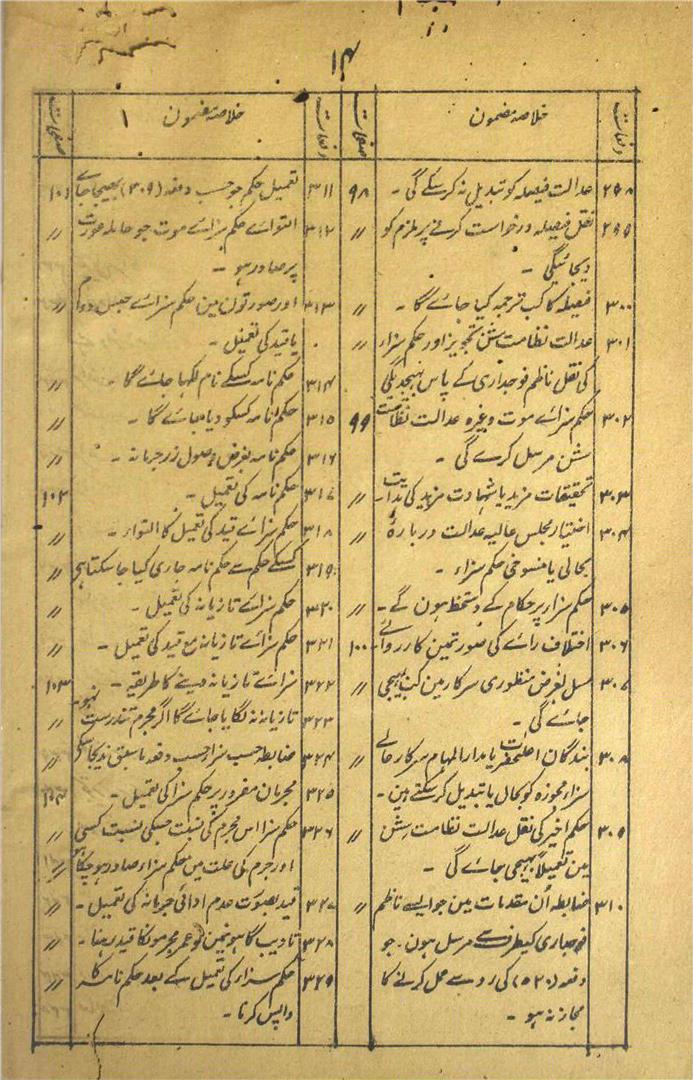 ۱۴
دفعات خلاصۂ مضمون صفحات
۲۹۸ عدالت فیصلہ کو تبدیل نہ کر سکے گی ۔ ۹۸
۲۹۹ نقل فیصلہ درخواست کرنے پر ملزم کو 〃
دیجائیگی ۔
۳۰۰ فیصلہ کا کب ترجمہ کیا جائے گا ۔ 〃
۳۰۱ عدالت نظامت سشن تجویز اور حکم سزاء 〃
کی نقل ناظم فوجداری کے پاس بھیجدیگی
۳۰۲ حکم سزائے موت وغیرہ عدالت نظامت ۹۹
سشن مرسل کرے گی ۔
۳۰۳ تحقیقات مزید یا شہادت مزید کی ہدایت ۔ 〃
۳۰۴ اختیار مجلس عالیہ عدالت دربارۂ 〃
بحالی یا منسوخی حکم سزاء ۔
۳۰۵ حکم سزا پر حکام کے دستخط ہون گے ۔ 〃
۳۰۶ اختلاف رائے کی صورتمین کارروائے ۔ ۱۰۰
۳۰۷ مسل بغرض منظوری سرکار مین کب بھیجی 〃
جائے گی ۔
۳۰۸ بندگان اعلیحضرت یا مدارالمہام سرکار عالے 〃
سزاء مجوزہ کو بحال یا تبدیل کر سکتے ہین ۔
۳۰۹ حکم اخیر کی نقل عدالت نظامت سشن 〃
مین تعمیلاً بھیجی جائے گی ۔
۳۱۰ ضابطہ اُن مقدمات مین جو ایسے ناظم 〃
فوجداری کیطرف سے مرسل ہون ۔ جو
دفعہ (۵۲۰) کی رو سے عمل کرنے کا
مجاز نہ ہو ۔
دفعات خلاصۂ مضمون ۱ صفحات
۳۱۱ تعمیل حکم جو حسب دفعہ (۳۰۹) بھیجا جائے ۱۰۱
۳۱۲ التوائے حکم سزائے موت جو حاملہ عورت 〃
پر صادر ہو ۔
۳۱۳ اور صورتون مین حکم سزائے حبس دوام 〃
یا قید کی تعمیل ۔
۳۱۴ حکم نامہ کسکے نام لکہا جائے گا ۔ 〃
۳۱۵ حکم نامہ کسکو دیا جائے گا ۔ 〃
۳۱۶ حکم نامہ بغرض وصول زر جرمانہ ۔ 〃
۳۱۷ حکم نامہ کی تعمیل ۔ ۱۰۲
۳۱۸ حکم سزائے قید کی تعمیل کا التواء ۔ 〃
۳۱۹ کسکے حکم سے حکم نامہ جاری کیا جا سکتا ہی 〃
۳۲۰ حکم سزائے تازیانہ کی تعمیل ۔ 〃
۳۲۱ حکم سزائے تازیانہ مع قید کی تعمیل ۔ 〃
۳۲۲ سزائے تازیانہ دینے کا طریقہ ۔ ۱۰۳
۳۲۳ تازیانہ نہ لگایا جائے گا اگر مجرم تندرست نہو ۔ 〃
۳۲۴ ضابطہ حسب سزا حسب دفعہ ماسبق ندیجا سکے 〃
۳۲۵ مجرمان مفرور پر حکم سزا کی تعمیل ۔ ۱۰۴
۳۲۶ حکم سزا اس مجرم کی نسبت جسکی نسبت کسی 〃
اور جرم کی علت مین حکم سزاء صادر ہو چکا ہو
۳۲۷ قید بصورت عدم ادائی جرمانہ کی تعمیل ۔ 〃
۳۲۸ تادیب گاہونمین نو عمر مجرمونکا قید رہنا ۔ 〃
۳۲۹ حکم سزاء کی تعمیل کے بعد حکم نامہ کا 〃
واپس کرنا ۔